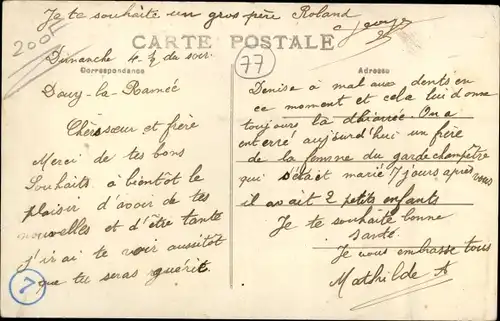 Je te souhaite un gros père Roland
Georges
200F
CARTE POSTALE
77
Correspondance
Adresse
Dimanche 4 h ½ du soir
Douy-la-Ramée
Chère sœur et frère
Merci de tes bons
Souhaits à bientôt le
plaisir d'avoir de tes
nouvelles et d'être tante
j'irai te voir aussitôt
que tu seras guérit.
7
Denise à mal aux dents en
ce moment et cela lui donne
toujours la dhiarrée. On a
enterré aujourd'hui un frère
de la femme du garde champêtre
qui s'était marié 7 jours après vous
il avait 2 petits enfants
Je te souhaite bonne
santé
Je vous embrasse tous
Mathilde A